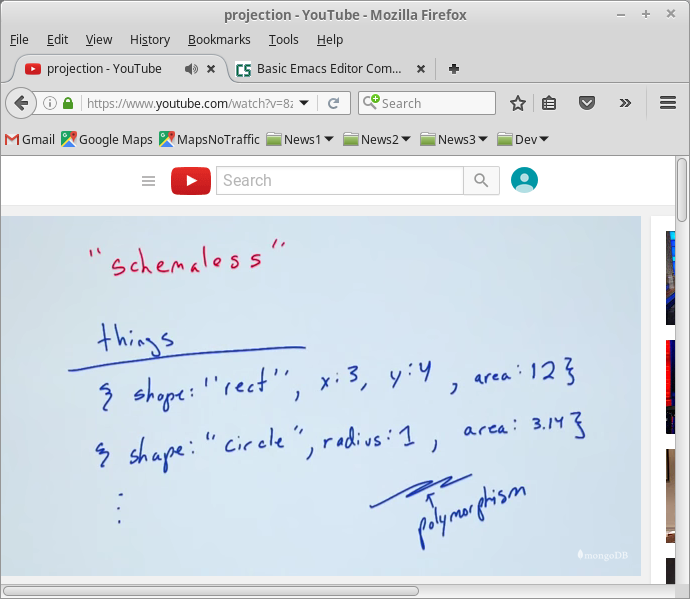 projection - YouTube - Mozilla Firefox
File Edit View History Bookmarks Tools Help
projection - YouTube Basic Emacs Editor Com...
https://www.youtube.com/watch?v=8z Search
Gmail Google Maps MapsNoTraffic News1 News2 News3 Dev
Search
"schemaless"
things
{ shape: "rect", x:3, y:4, area:12}
{ shape: "circle", radius:1, area: 3.14}
⋮
polymorphism
mongoDB